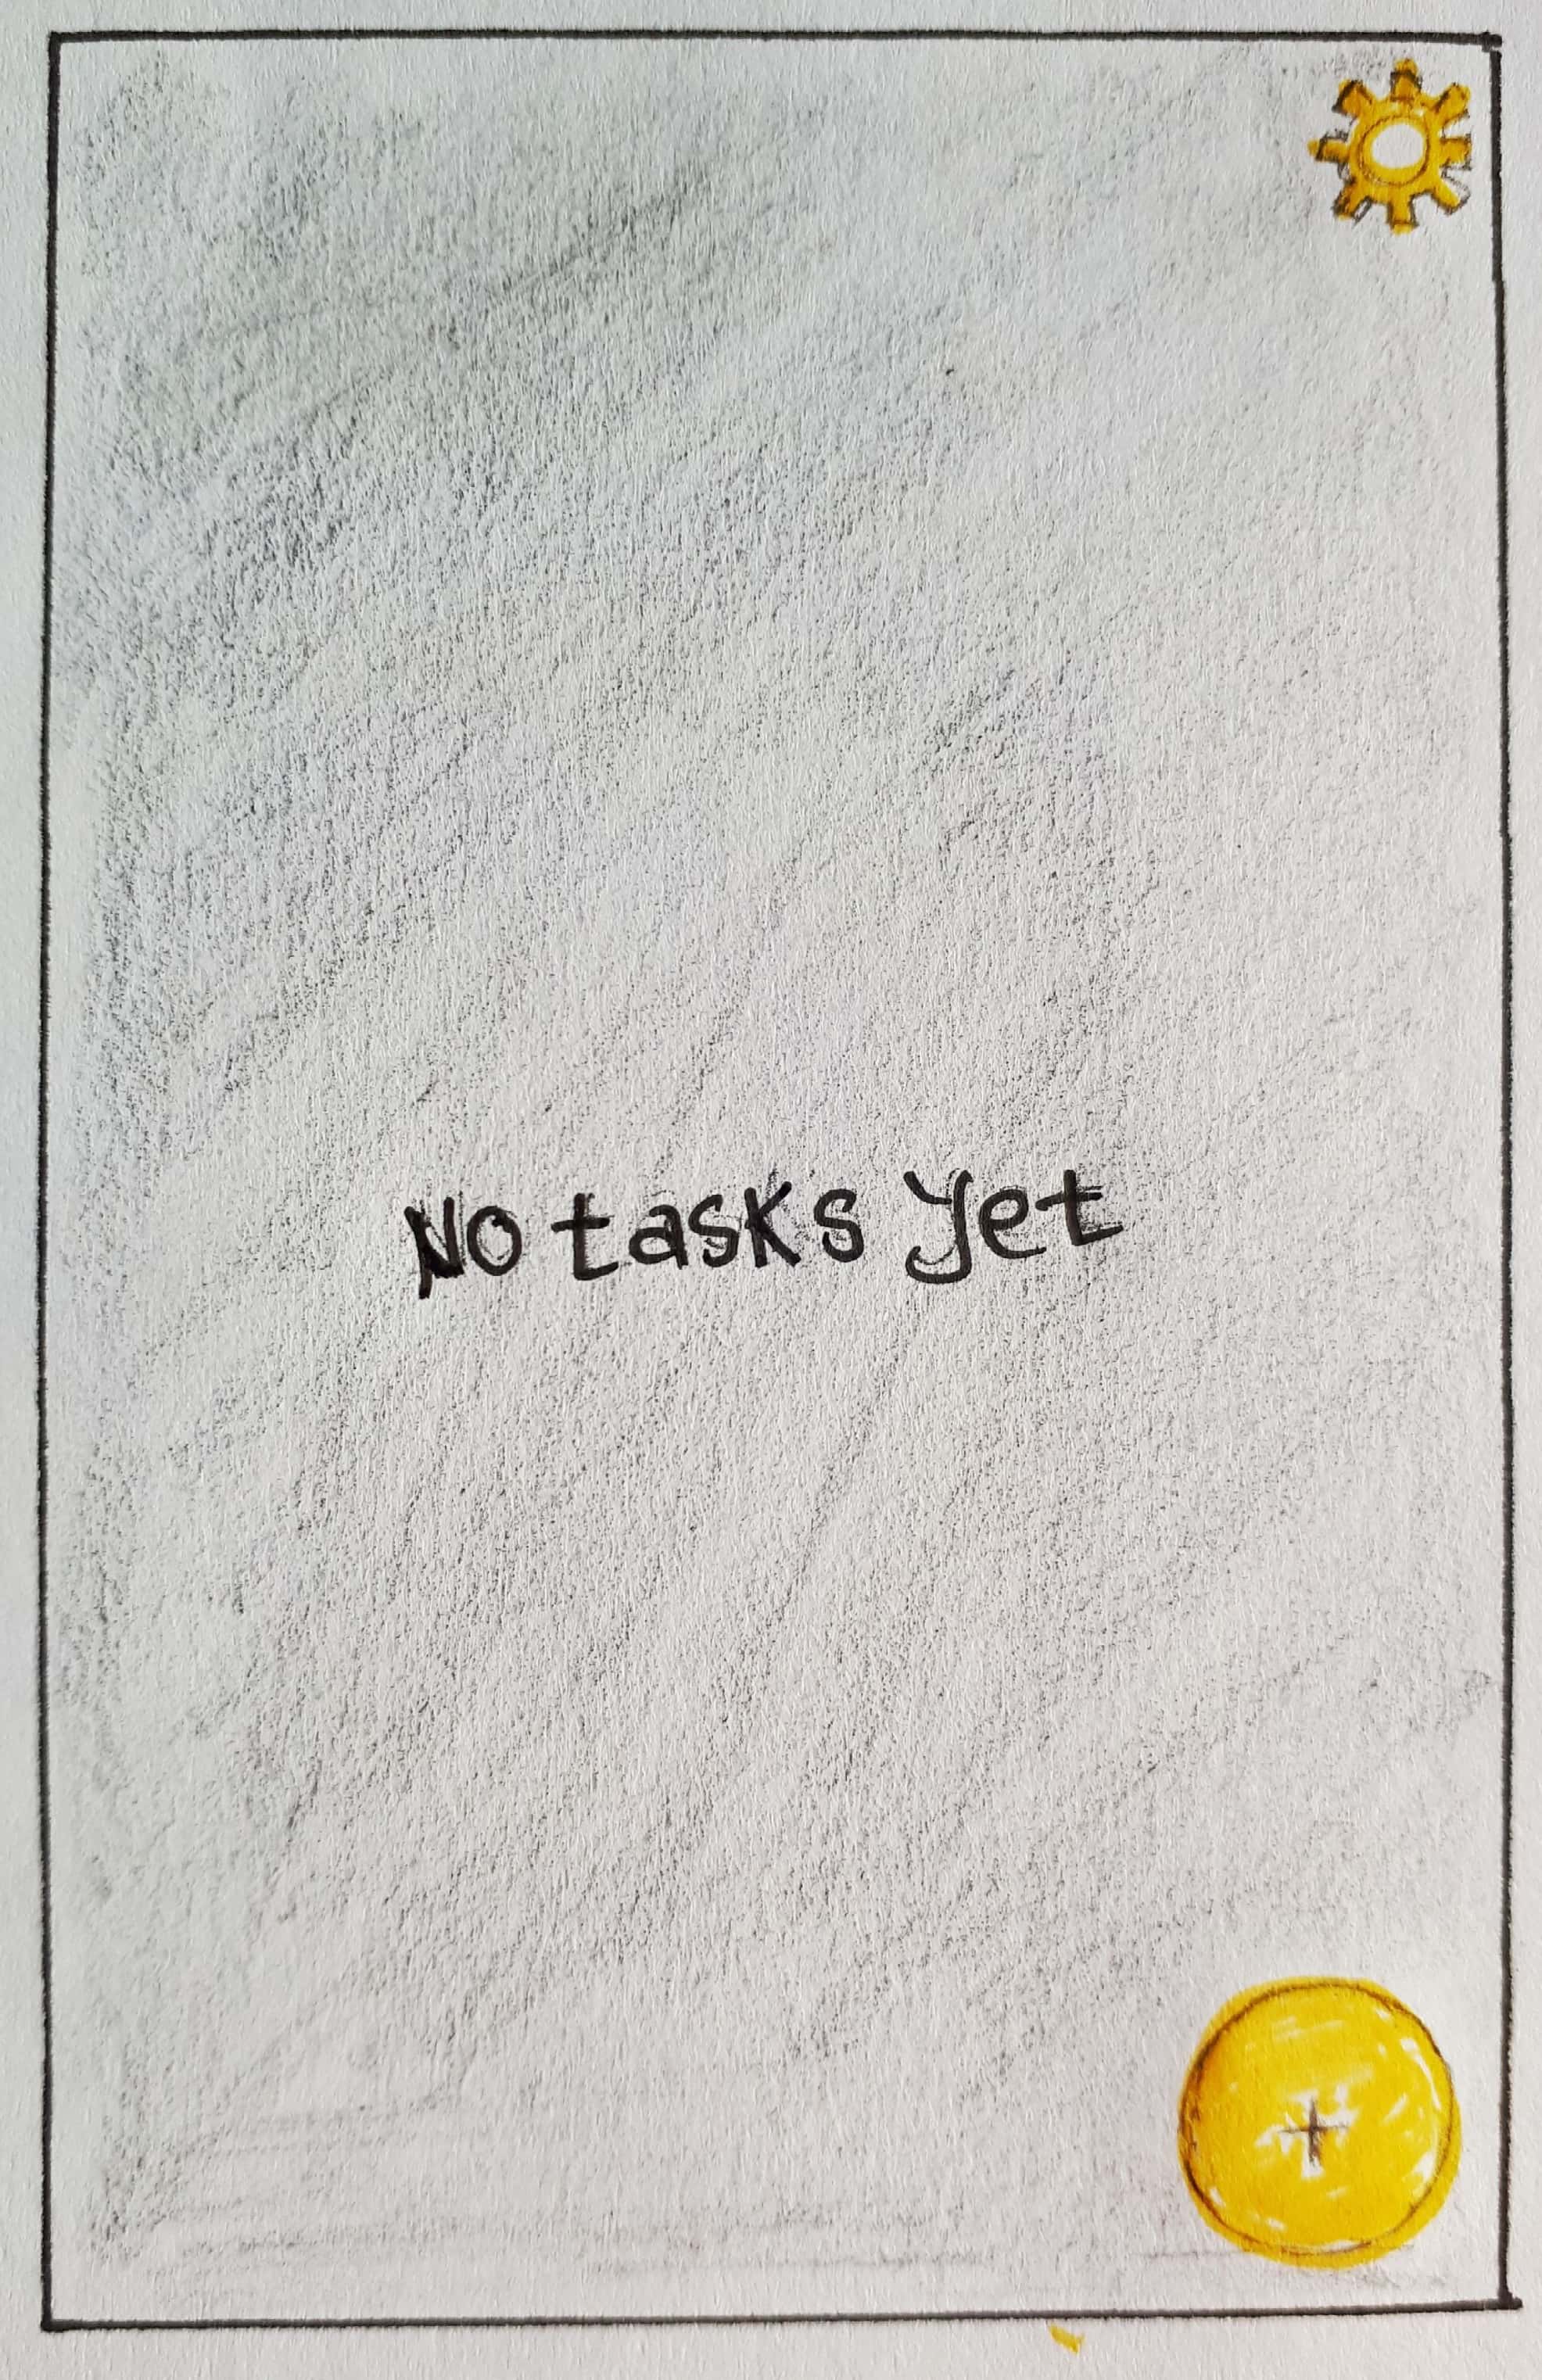 No tasks yet
+